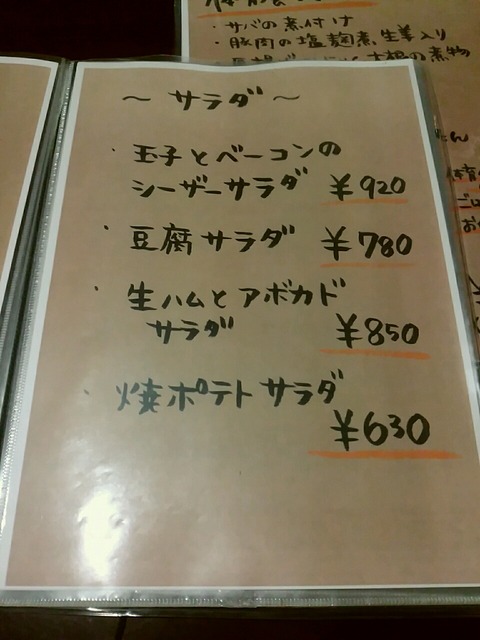 ・サバの煮付け
・豚肉の塩麹煮 生姜入り
大根の煮物
～サラダ～
・玉子とベーコンの
シーザーサラダ ¥920
・豆腐サラダ ¥780
・生ハムとアボカド
サラダ ¥850
焼ポテトサラダ
¥630